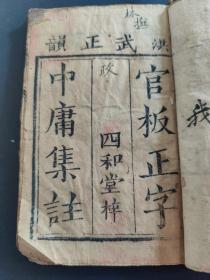 洪武正韻
官板正字
四和堂梓
中庸集註
我